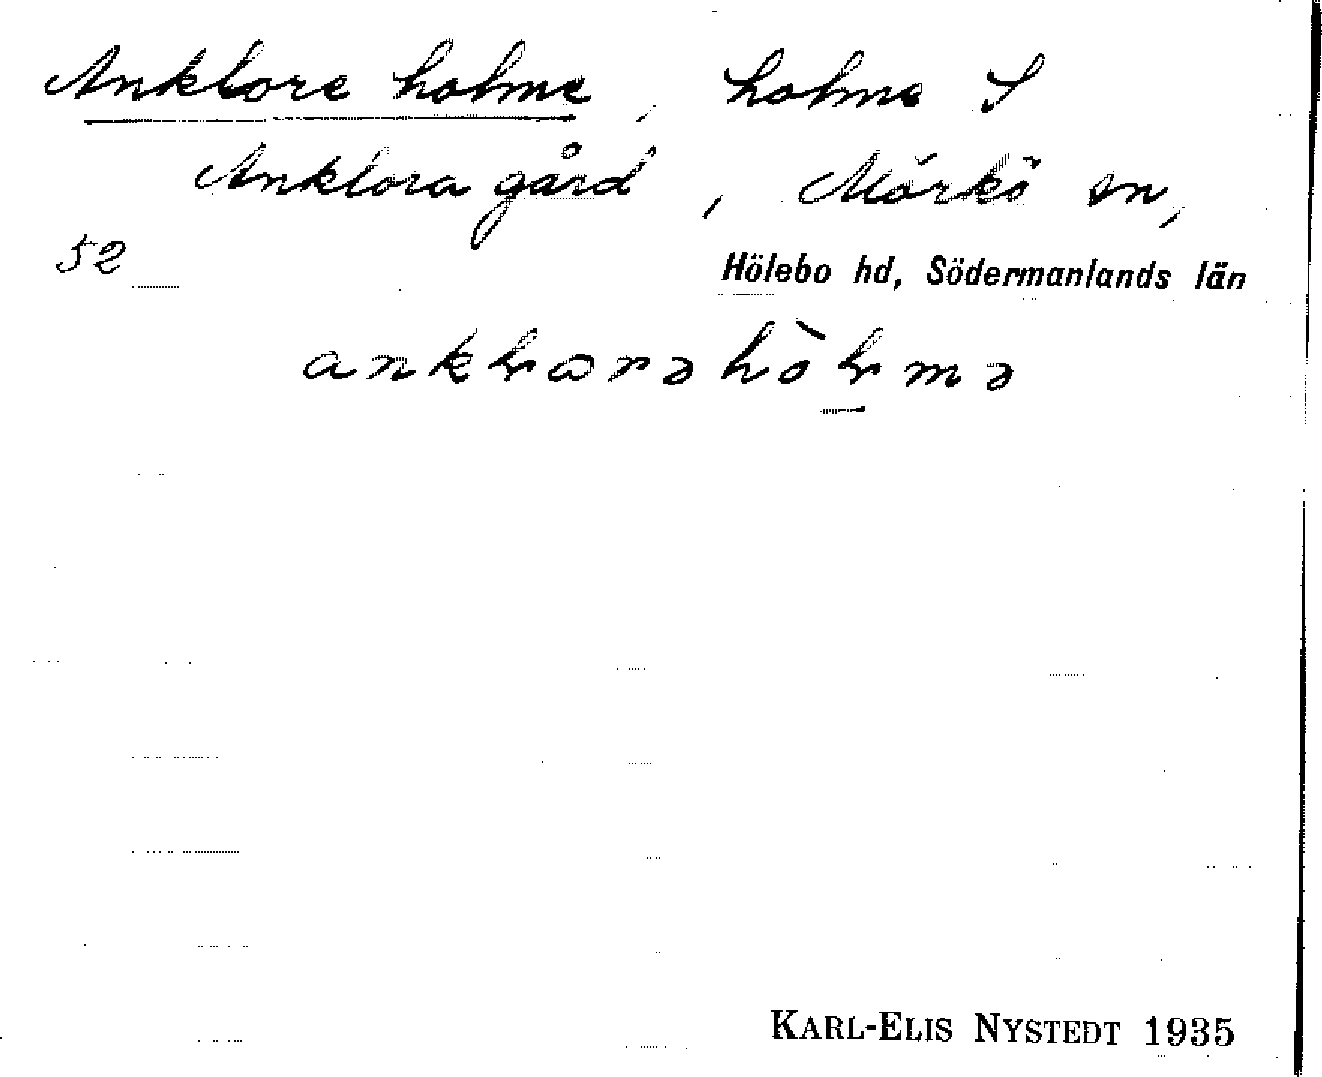 Anklore holme, holme S
Anklora gård, Mörkö sn,
52
Hölebo hd, Södermanlands län
KARL-ELIS NYSTEDT 1935